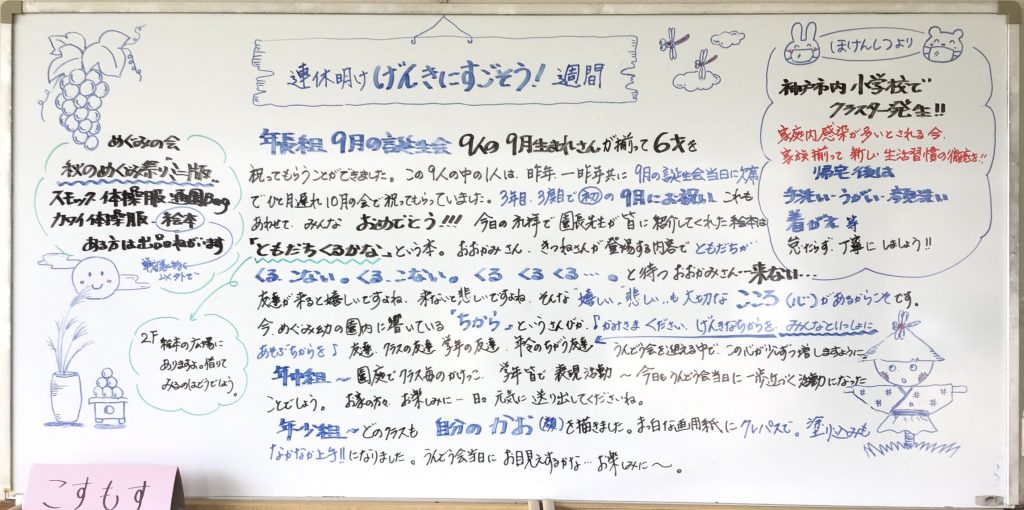 連休明け げんきにすごそう! 週間
めぐみの会
秋のめぐみ祭りミニ版
スモック 体操服 通園Bag
カライ体操服 絵本
ある方は出品ねがいます
2F 絵本の広場に
ありますよ。借りて
みるのはどうでしょう。
年長組 9月の誕生会 9人の9月生まれさんが揃って6才を
祝ってもらうことができました。この9人の中の1人は、昨年、一昨年共に9月の誕生会当日に欠席
でひと月遅れ10月の会で祝ってもらっていました。3年目、3度目で初の9月にお祝い これも
あわせて、みんな おめでとう!!! 今日の礼拝で園長先生が皆に紹介してくれた絵本は
「ともだちくるかな」という本。おおかみさん、きつねさんが登場する内容でともだちが
くる、こない。くる、こない。くる くるくる…。と待つおおかみさん…来ない…
友達が来ると嬉しいですよね、来ないと悲しいですよね、そんな"嬉しい","悲しい"も大切なこころ(心)があるからこそです。
今、めぐみ幼の園内に響いている「ちから」といううたが、♪かみさま ください、げんきなちからを、みんなといっしょに
あそぶちからを♪ 友達、クラスの友達、学年の友達、年令のちがう友達 うんどう会を迎える中で、この心がりんずつ増しますように
年中組〜園庭でクラス毎のかけっこ、学年皆で表現活動〜今日もうんどう会当日に一歩近づく活動になった
ことでしょう。お家の方々、お楽しみに…日々元気に送り出してくださいね。
年少組〜どのクラスも 自分のかお(顔)を描きました。まっ白な画用紙にクレパスで。塗り込みも
なかなか上手!!になりました。うんどう会当日にお目見えするかな…お楽しみに〜。
ほけんしつより
神戸市内 小学校で
クラスター発生!!
家庭内感染が多いとされる今、
家族揃って新しい生活習慣の徹底を!!
帰宅後は
手洗い・うがい・顔洗い
着がえ 等
怠らず、丁寧にしましょう!!
こすもす